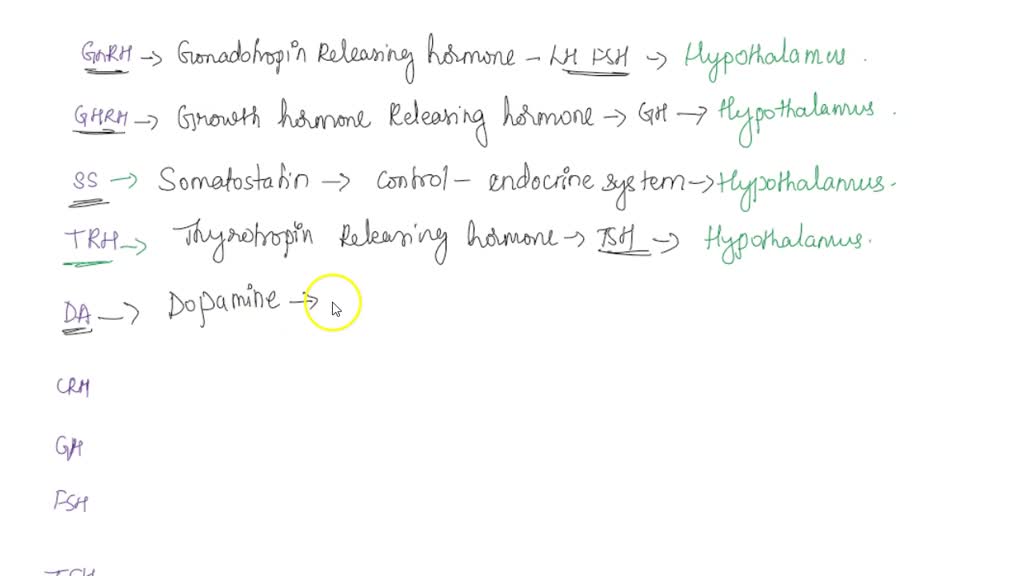 GnRH → Gonadotropin Releasing hormone - LH FSH → Hypothalamus.
GHRH → Growth hormone Releasing hormone → GH → Hypothalamus.
SS → Somatostatin → control - endocrine system → Hypothalamus.
TRH → Thyrotropin Releasing hormone → TSH → Hypothalamus.
DA → Dopamine →
CRH
GH
FSH
TSH